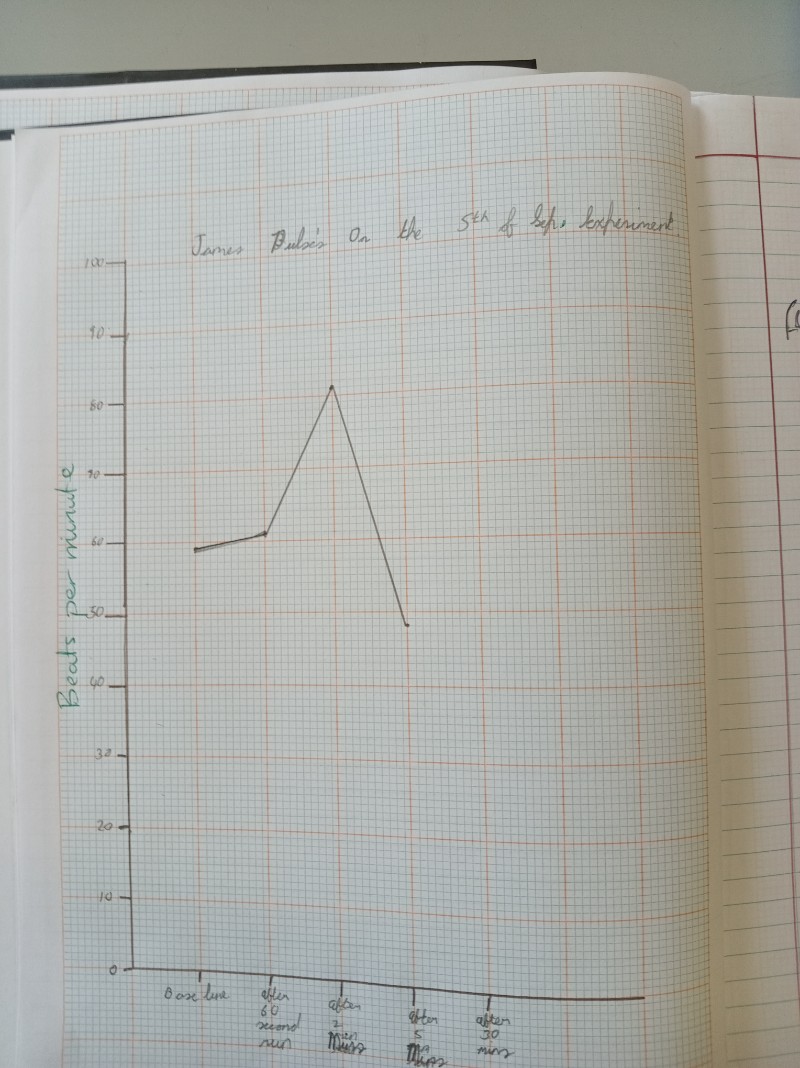 James Pulse's On the 5th of Sep. Experiment
100
90
80
70
60
50
40
30
20
10
0
Beats per minute
Base line
after
60
second
run
after
2
Mins
after
5
Mins
after
30
mins